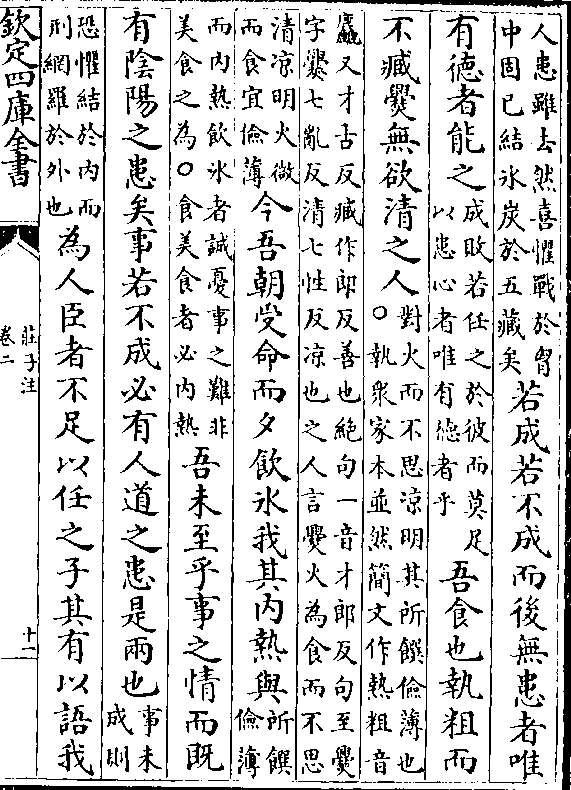 人患雖去然喜懼戰於胷
中固已結氷炭於五藏矣
若成若不成而後無患者唯
有德者能之
成敗若任之於彼而莫足
以患心者唯有德者乎
吾食也執粗而
不臧爨無欲清之人
對火而不思凉明其所饌儉薄也
○執衆家本並然簡文作熱粗音
麤又才古反臧作郎反善也絶句一音才郎反句至爨
字爨七亂反清七性反凉也之人言爨火為食而不思
清凉明火微
而食宜儉薄
今吾朝受命而夕飲氷我其内熱與
所饌
儉薄
而内熱飲氷者誠憂事之難非
美食之為○食美食者必内熱
吾未至乎事之情而既
有陰陽之患矣事若不成必有人道之患是兩也
事未
成則
恐懼結於内而
刑網羅於外也
為人臣者不足以任之子其有以語我
欽定四庫全書
莊子注
卷二
十一